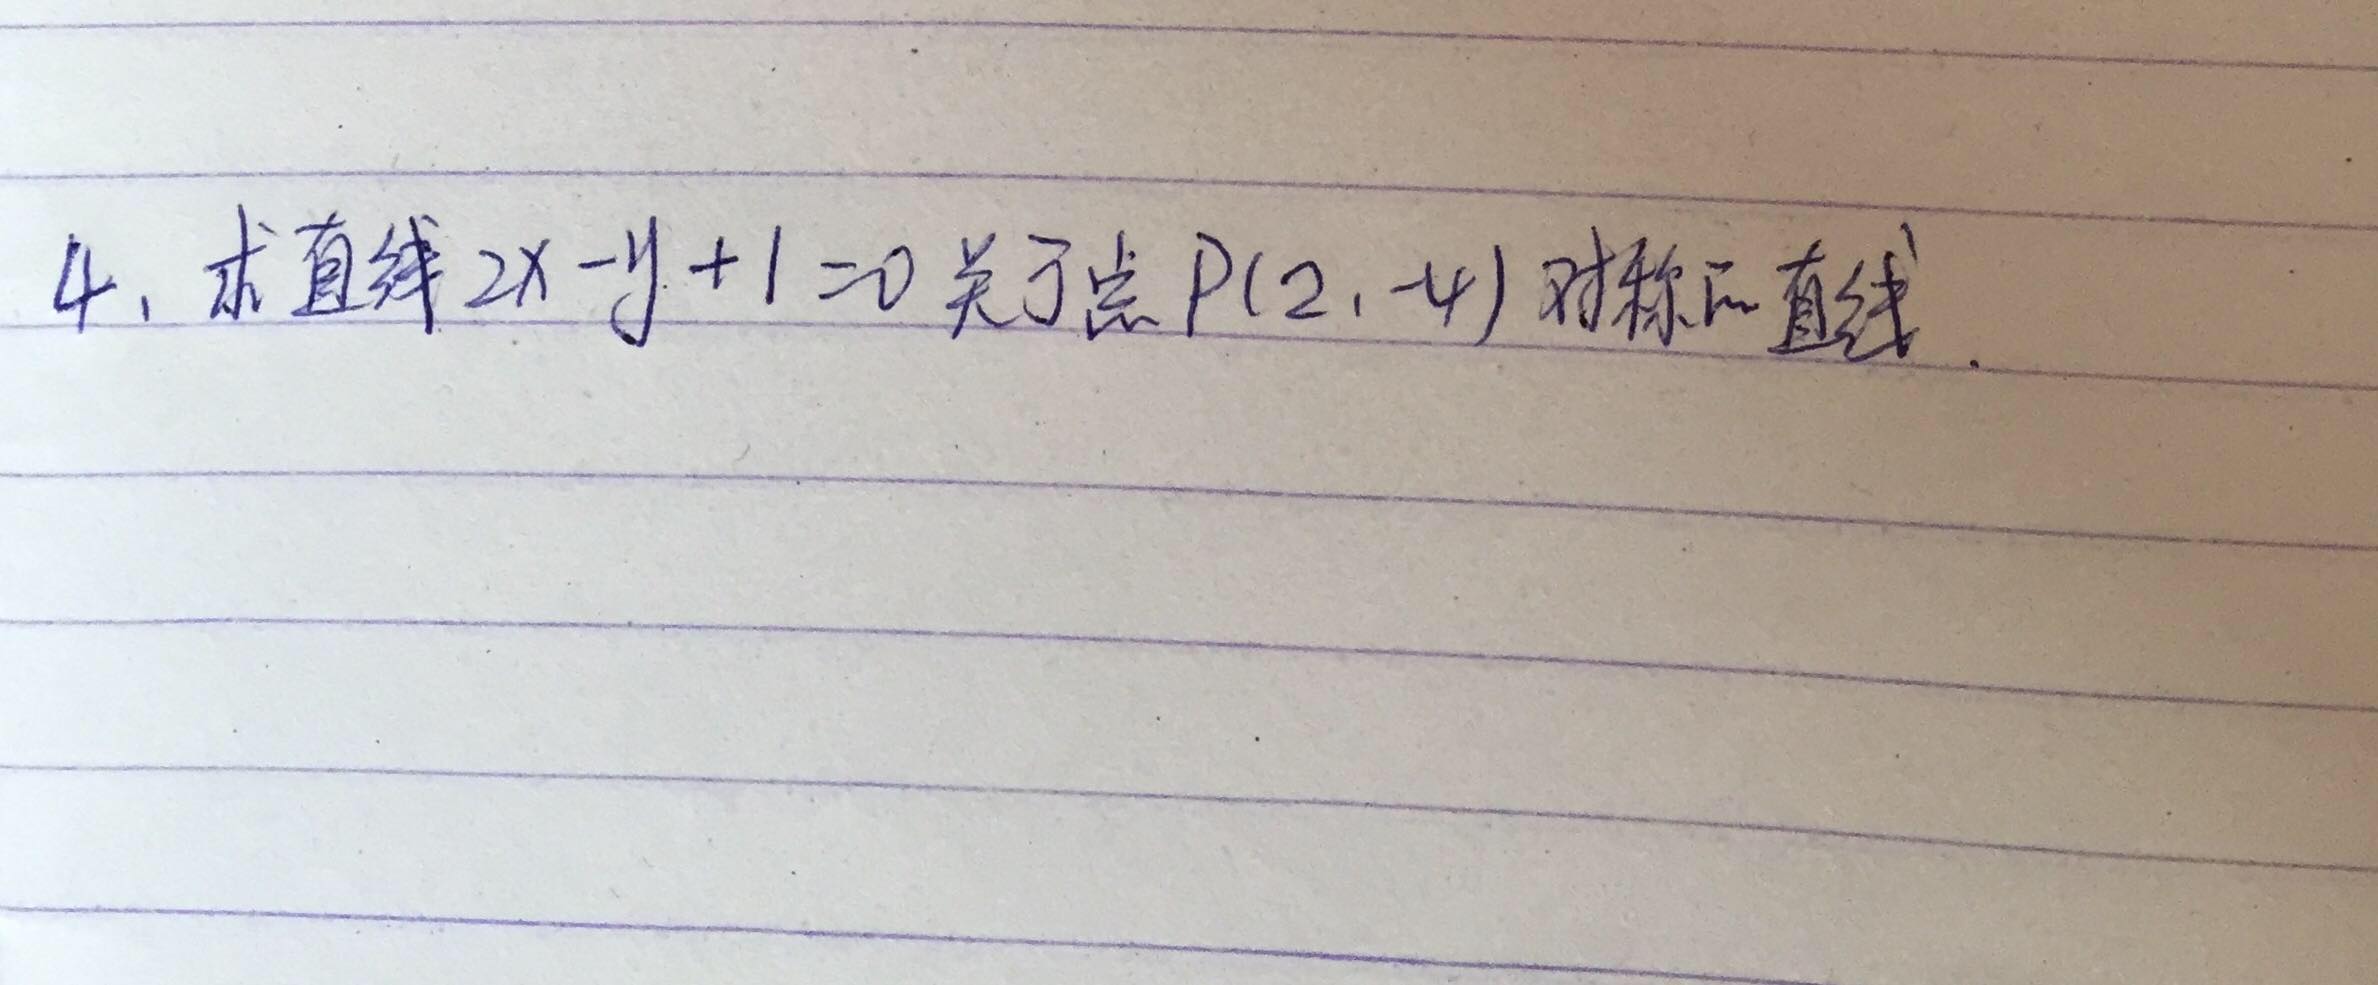 4、求直线2x-y+1=0关于点P(2,-4)对称的直线.